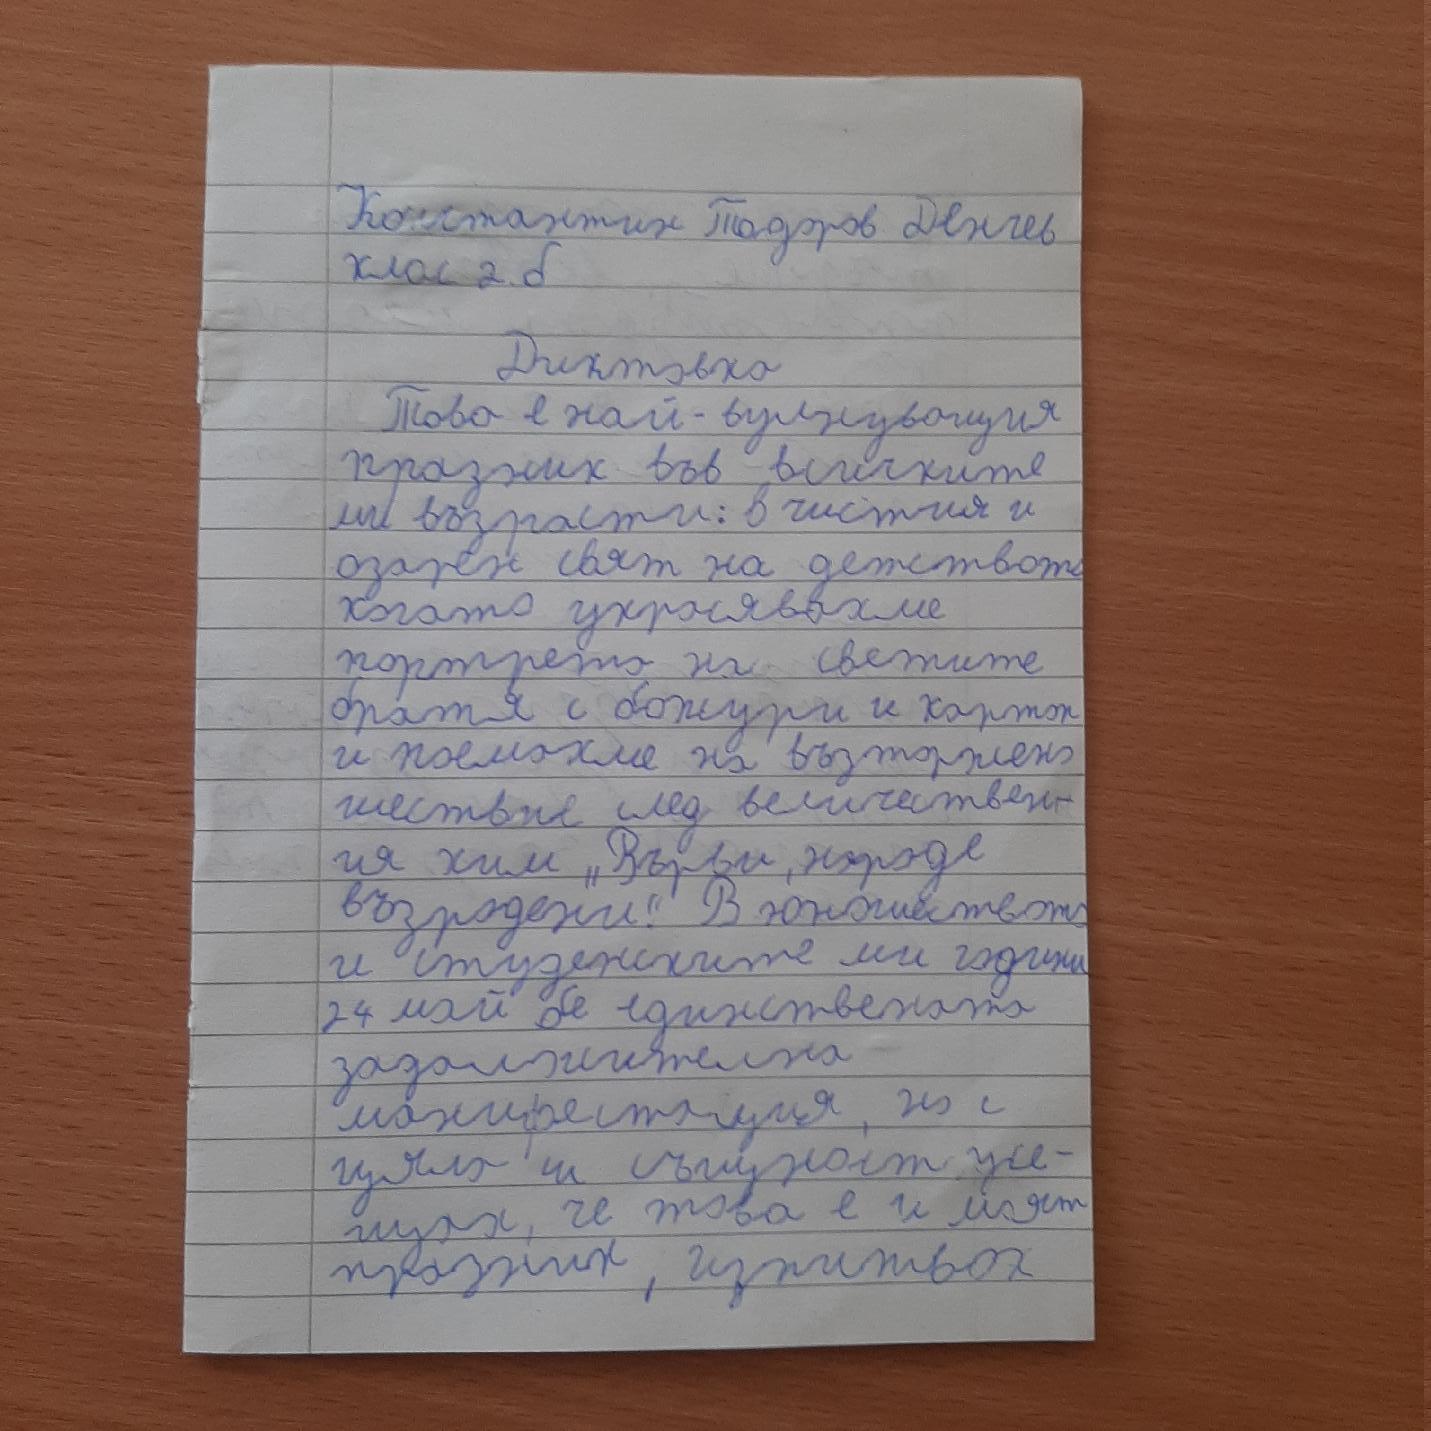 Константин Тодоров Денчев
клас 2.б
Диктовка
Това е най-вулнуващия
празник във всичките
ми възрасти: в чистия и
озарен свят на детството
когато украсявахме
портрета на светите
братя с божури и картон
и поемахме на възторжено
шествие след величествен-
ия хим „Върви, народе
възродени". В юношеството
и студенските ми години
24 май бе единствената
задалжителна
манифестация, но с
цяла си същност усе-
щах, че това е и моят
празник, изпитвах